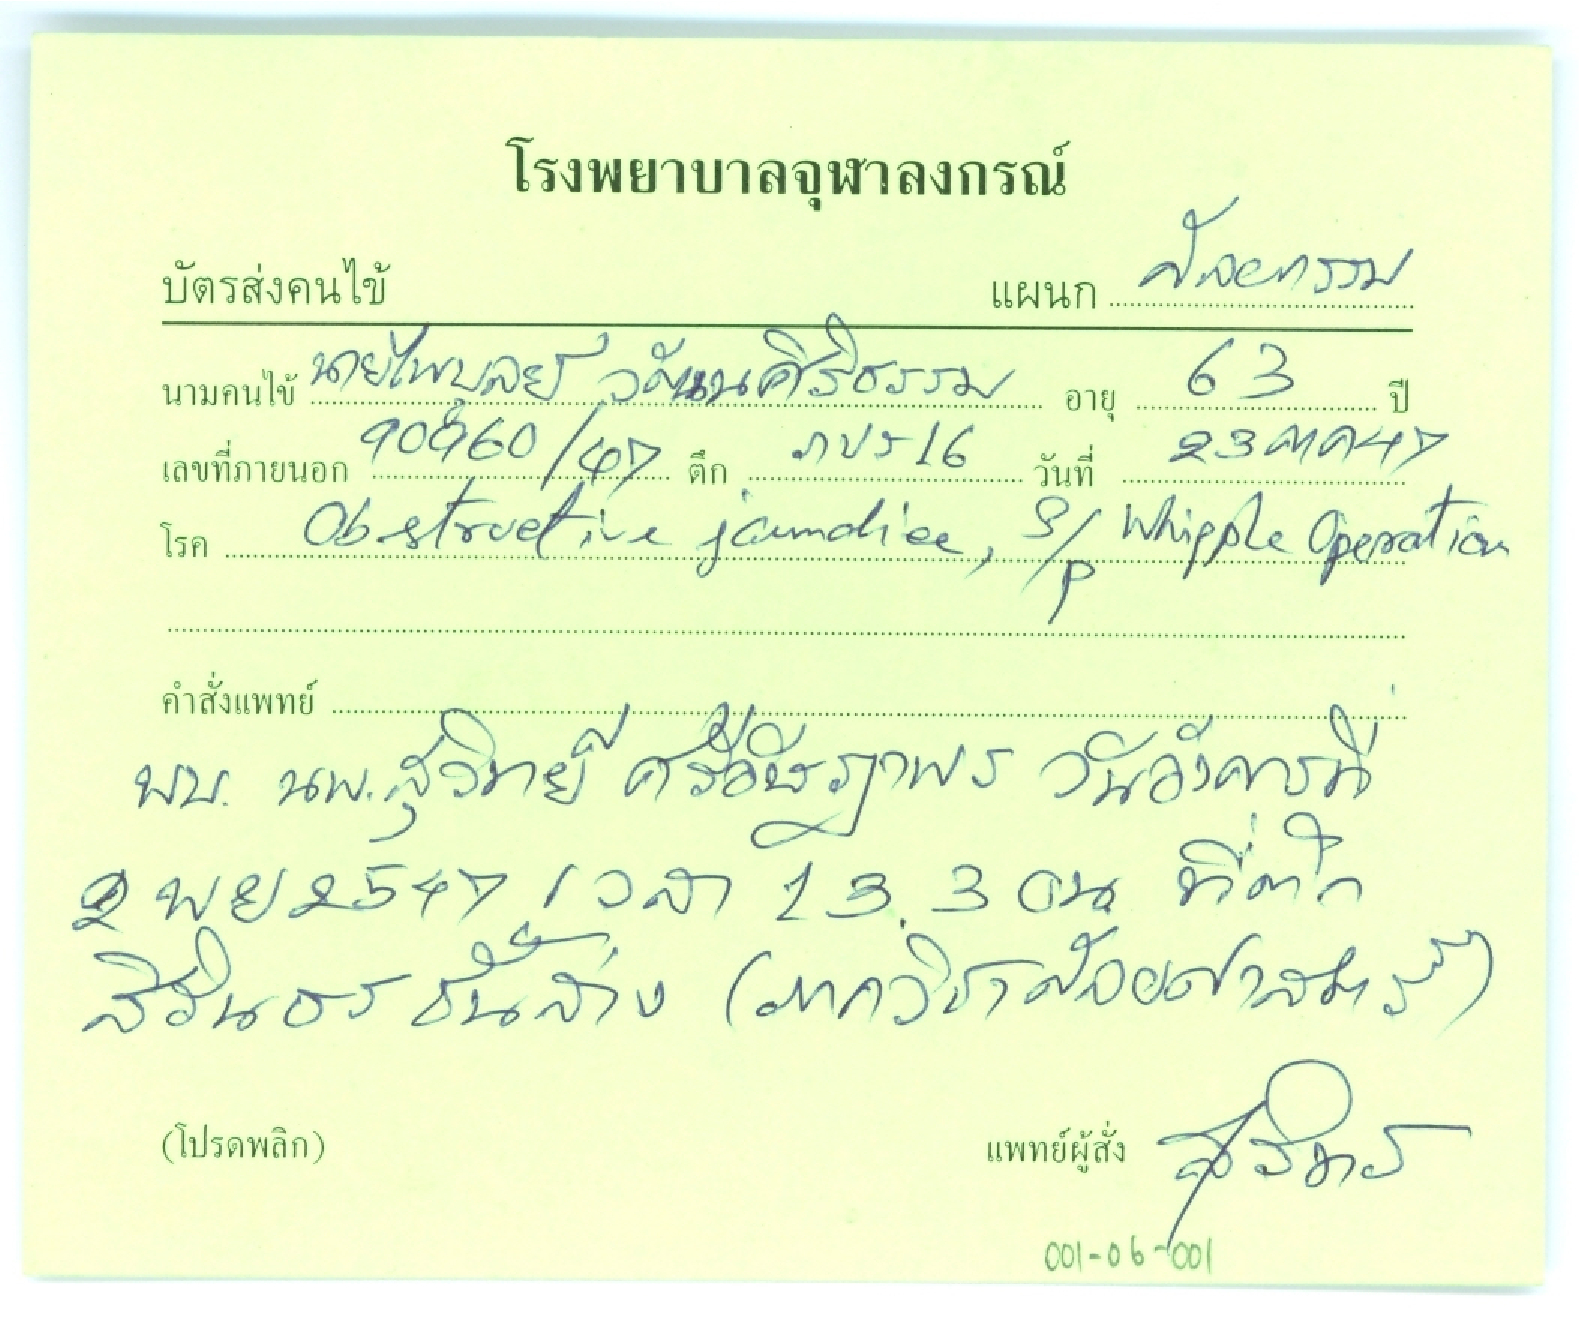 โรงพยาบาลจุฬาลงกรณ์
บัตรส่งคนไข้ แผนก ศัลยกรรม
นามคนไข้ นายไพบูลย์ วัฒนศิริธรรม อายุ 63 ปี
เลขที่ภายนอก 90960/47 ตึก ภปร 16 วันที่ 23 ตค 47
โรค Obstructive jaundice, S/P Whipple Operation
คำสั่งแพทย์
พบ. นพ.สุวิทย์ ศรีอัษฎาพร วันอังคารที่
2 พย 2547 เวลา 13.30น ที่ตึก
สิรินธร ชั้นล่าง (ภาควิชาศัลยศาสตร์)
(โปรดพลิก) แพทย์ผู้สั่ง
001-06-001